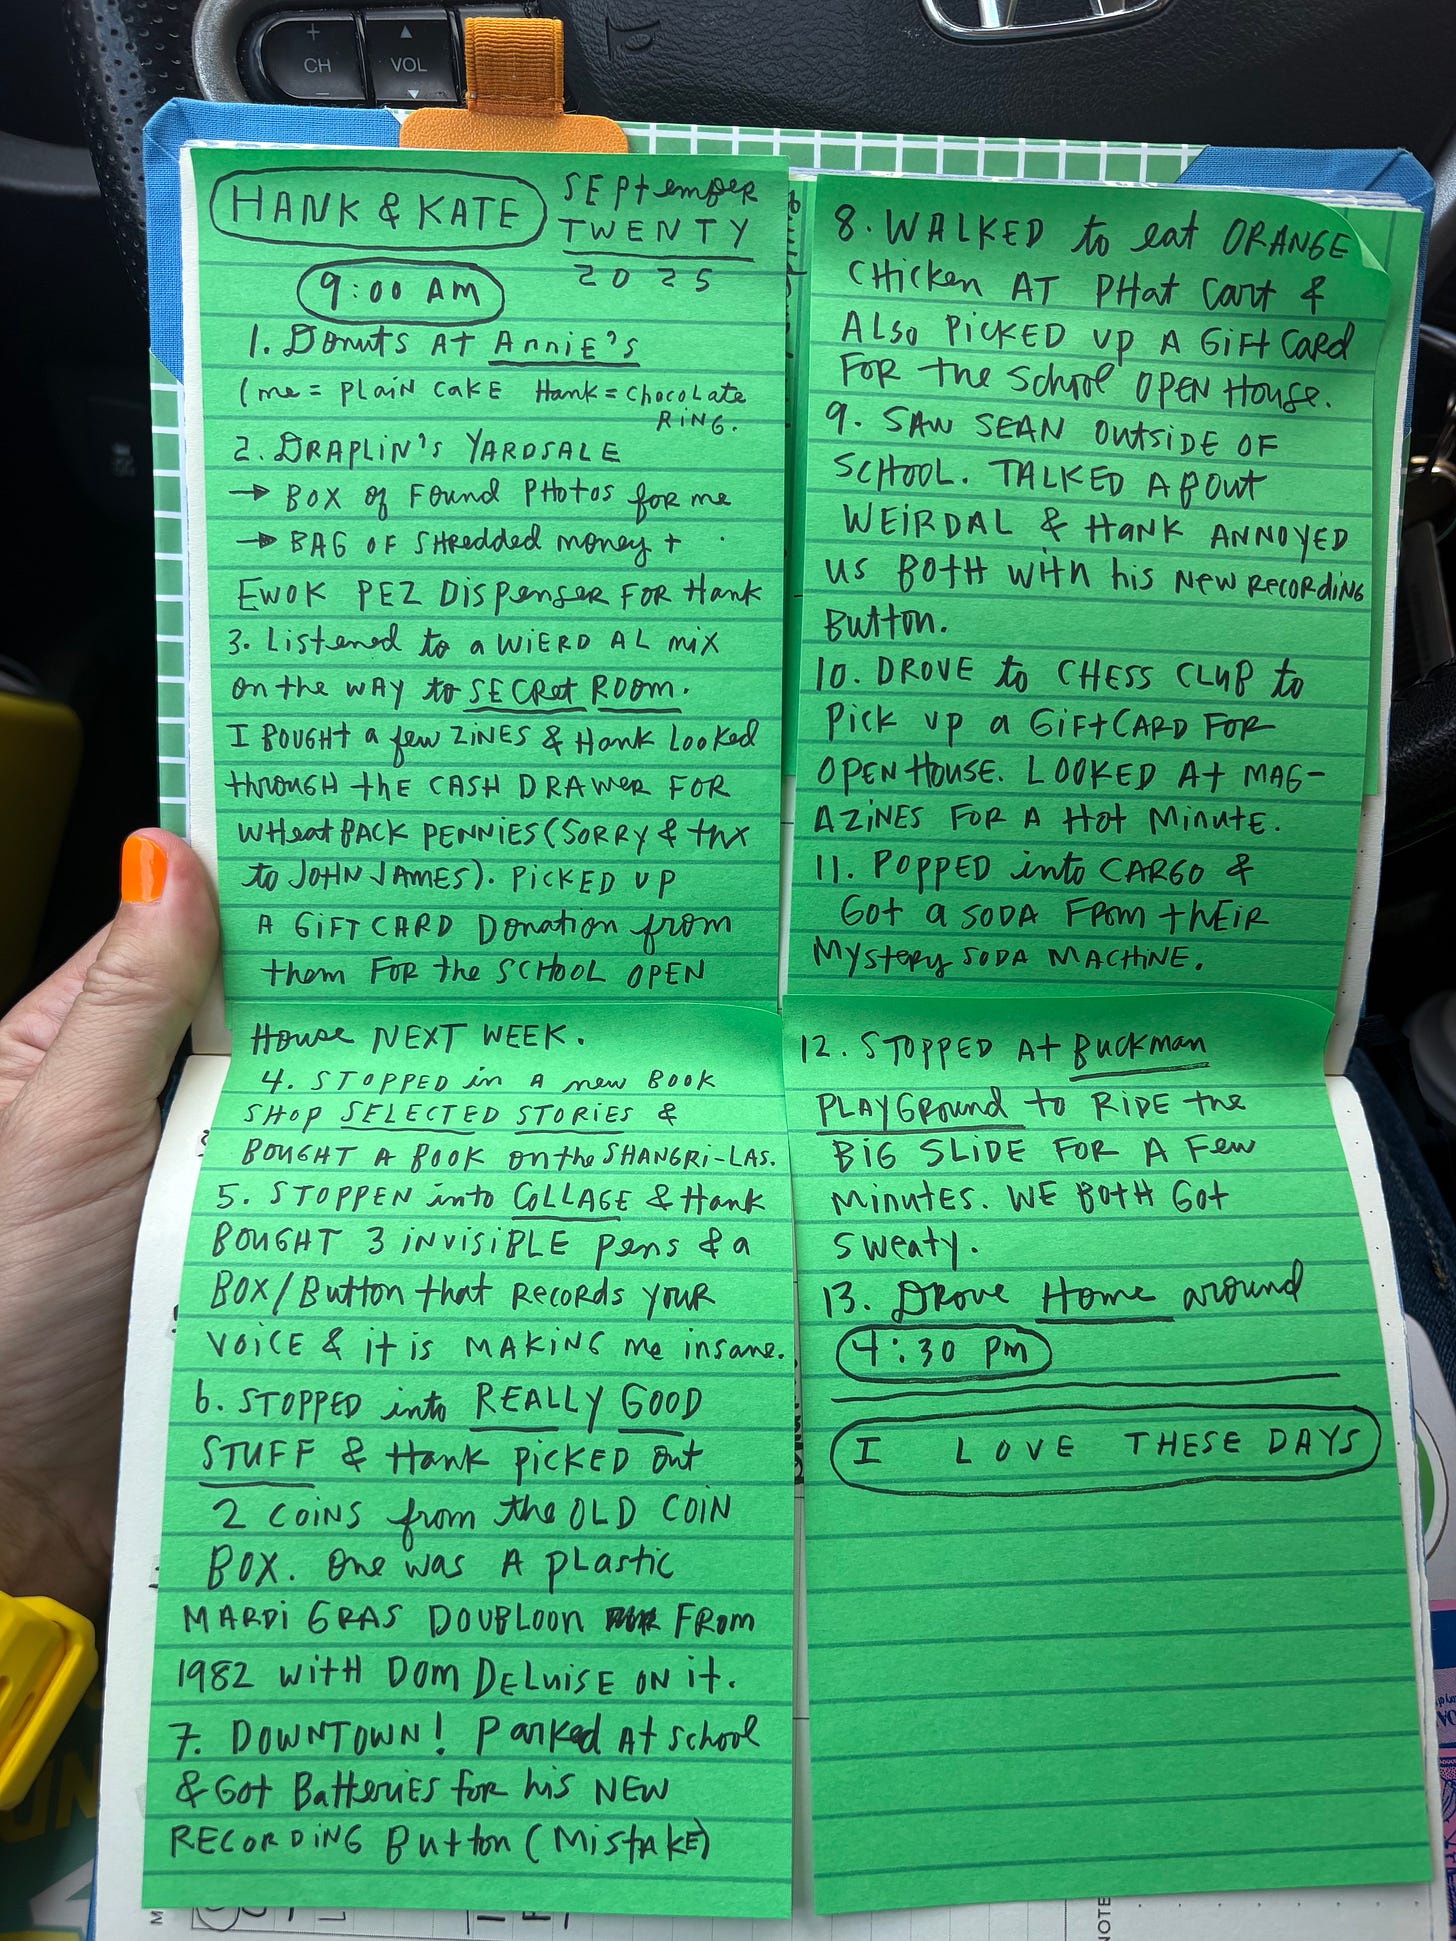 CH
VOL
HANK & KATE
SEPtember
TWENTY
2025
9:00 AM
1. Donuts At Annie's
(me = PLAiN CAKE Hank = CHOCOLAte
RiNG.
2. DRAPLiN'S YARDSALE
→ BOX of Found PHotos for me
→ BAG OF SHRedded money +
EWOK PEZ DISPenser FOR Hank
3. Listened to a WiERD AL mix
on the WAY to SECRet ROOM.
I BOUGHt a few ZiNES & Hank Looked
through the CASH DRAWER FOR
WHeat BACK PENNiES (SORRY & thx
to JOHN JAMES). PiCKED UP
A GiFT CARD Donation from
them FOR the SCHOOL OPEN
House NEXT WEEK.
4. STOPPED in A new BOOK
SHOP SELECTED STORiES &
BOUGHT A BOOK on the SHANGRi-LAS.
5. STOPPEN into COLLAGE & Hank
BOUGHT 3 iNViSiBLE Pens & a
BOX/Button that Records your
VOiCE & it is MAKiNG me insane.
6. STOPPED into REALLY GOOD
STUFF & Hank PiCKED out
2 COiNS from the OLD COiN
BOX. One was A PLAStic
MARDi GRAS DOUBLOON FROM
1982 WiTH DOM DELUiSE ON it.
7. DOWNTOWN! Parked At School
& Got Batteries for his NEW
RECORDiNG Button (MiStAKE)
8. WALKED to eat ORANGE
CHicken AT PHat Cart &
ALSO PiCKED UP A GiFt CARd
FOR the School OPEN House.
9. SAW SEAN OutSiDE OF
SCHOOL. TALKED ABOUt
WEiRDAL & Hank ANNOYED
us BOTH WitH his NEW RECORDiNG
Button.
10. DROVE to CHESS CLUB to
Pick up a GiFtCARD FOR
OPEN House. LOOKED At MAG-
AZiNES FOR A Hot Minute.
11. POPPED into CARGO &
Got a SODA FROM tHEiR
MyStery SODA MACHiNE.
12. STOPPED At Buckman
PLAYGRound to RiDE the
BiG SLiDE FOR A Few
Minutes. WE BotH Got
Sweaty.
13. Drove Home around
4:30 Pm
I LOVE THESE DAYS